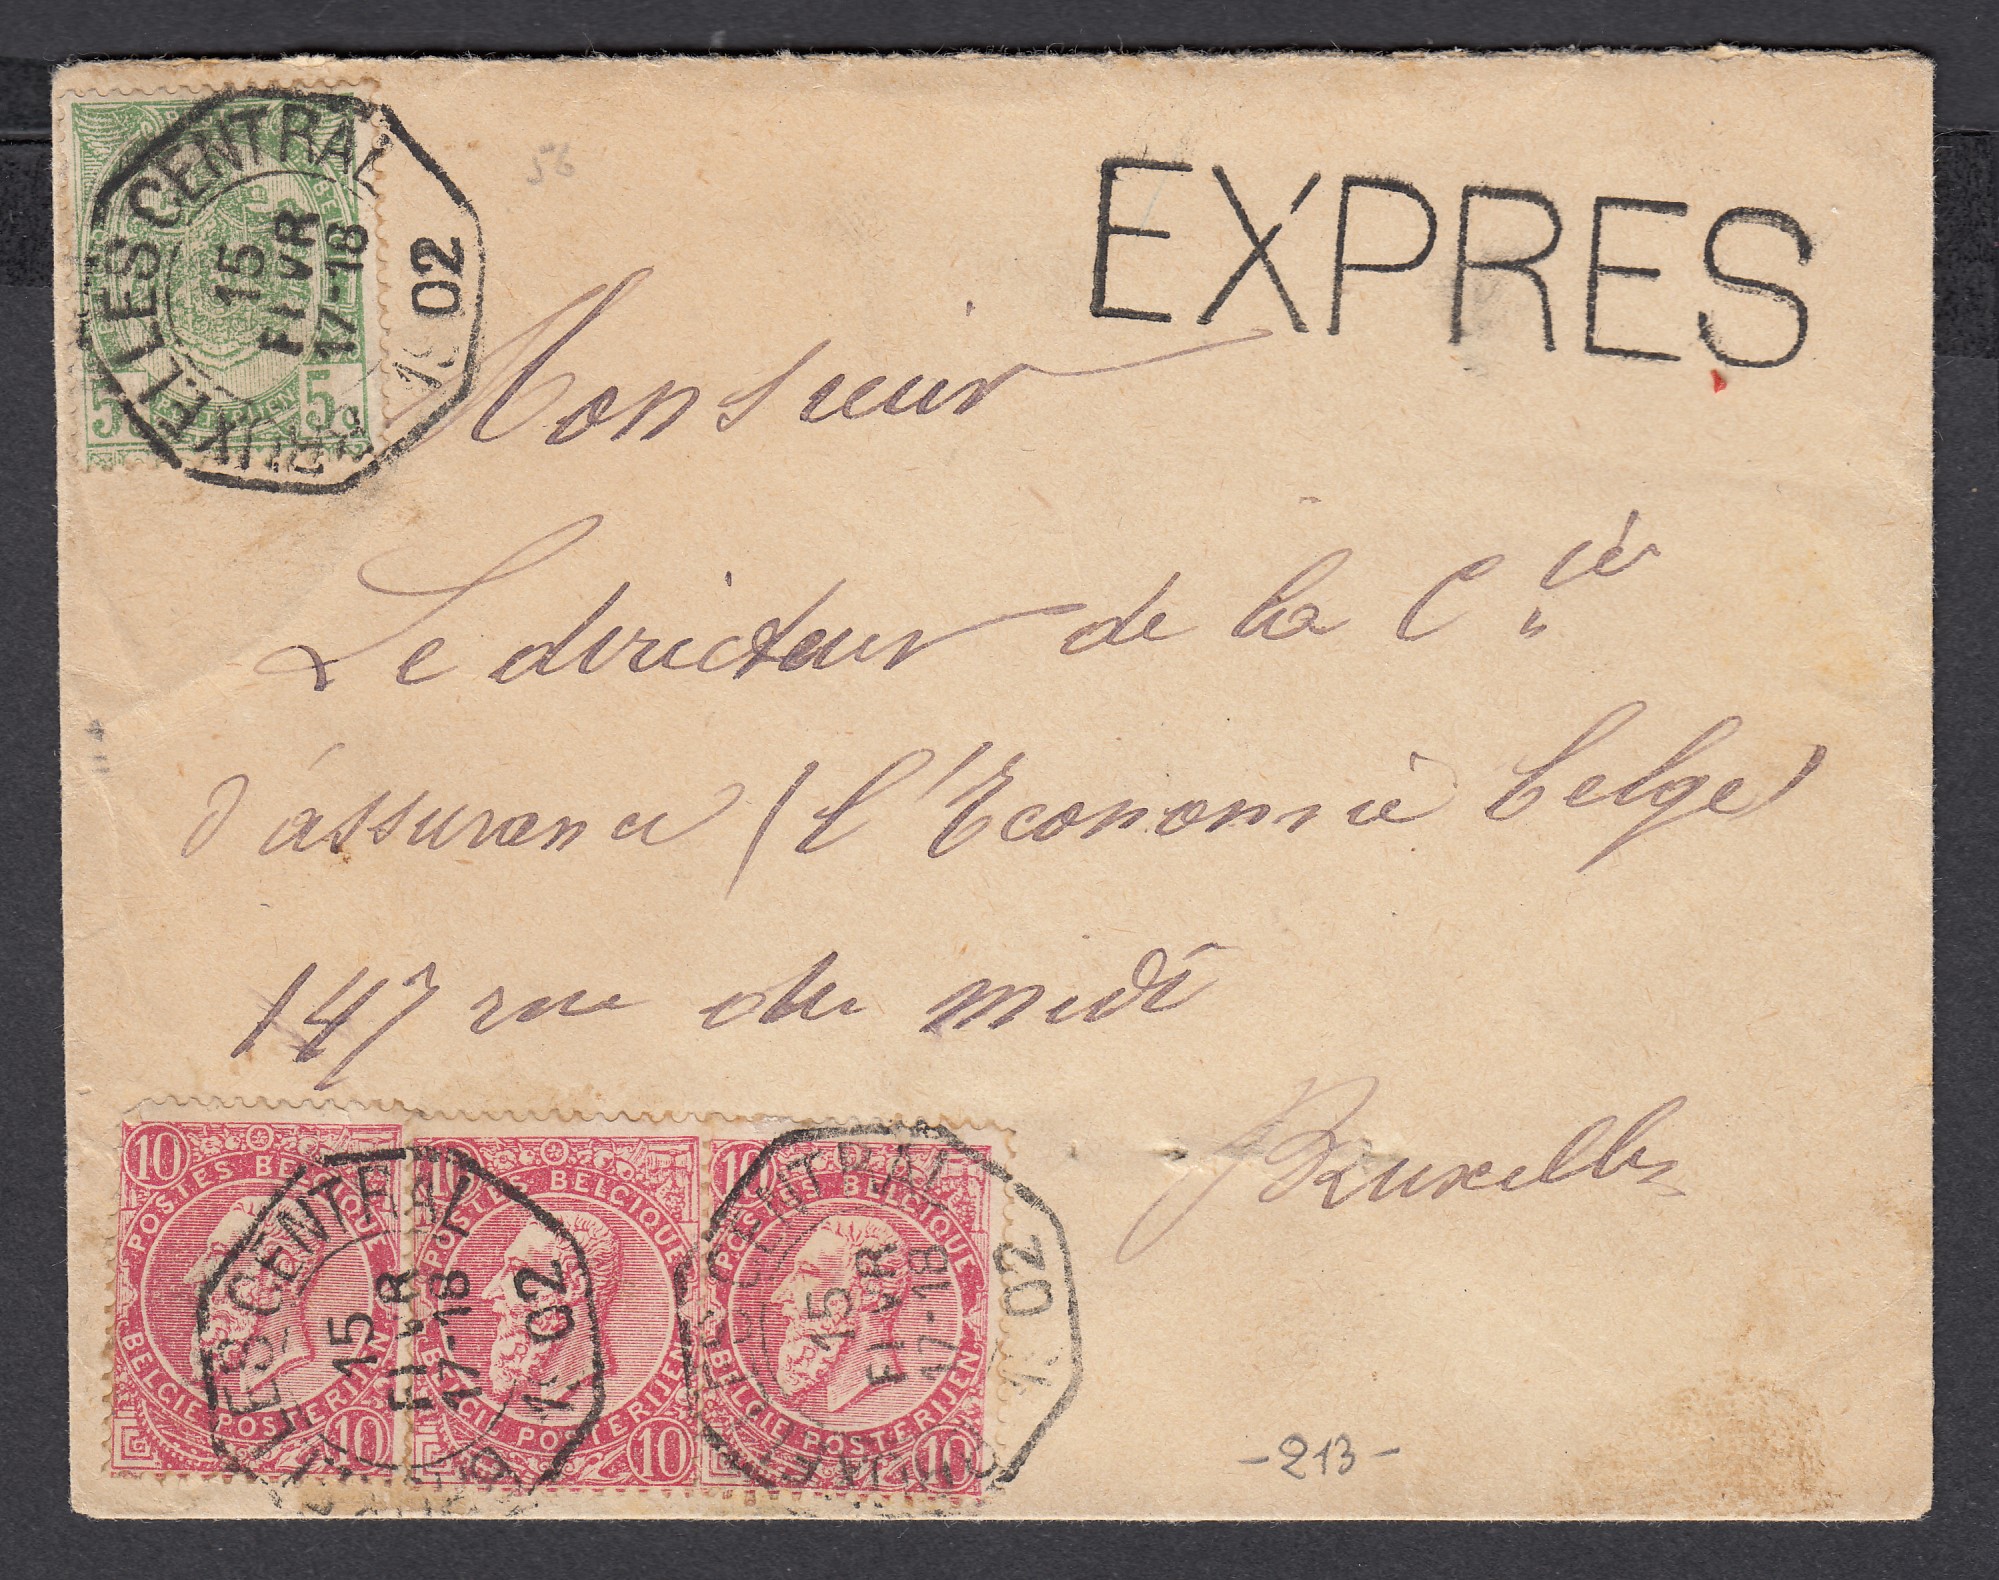 EXPRES
56
5 5c
BRUXELLES CENTRAL
15
FEVR
17-18
1902
Monsieur
Le directeur de la Cie
d'assurance (l'Economie belge)
147 rue du midi
Bruxelles
10 10
POSTES BELGIQUE
BELGIE POSTERIJEN
10 10
POSTES BELGIQUE
BELGIE POSTERIJEN
10 10
POSTES BELGIQUE
BELGIE POSTERIJEN
BRUXELLES CENTRAL
15
FEVR
17-18
1902
BRUXELLES CENTRAL
15
FEVR
17-18
1902
-213-